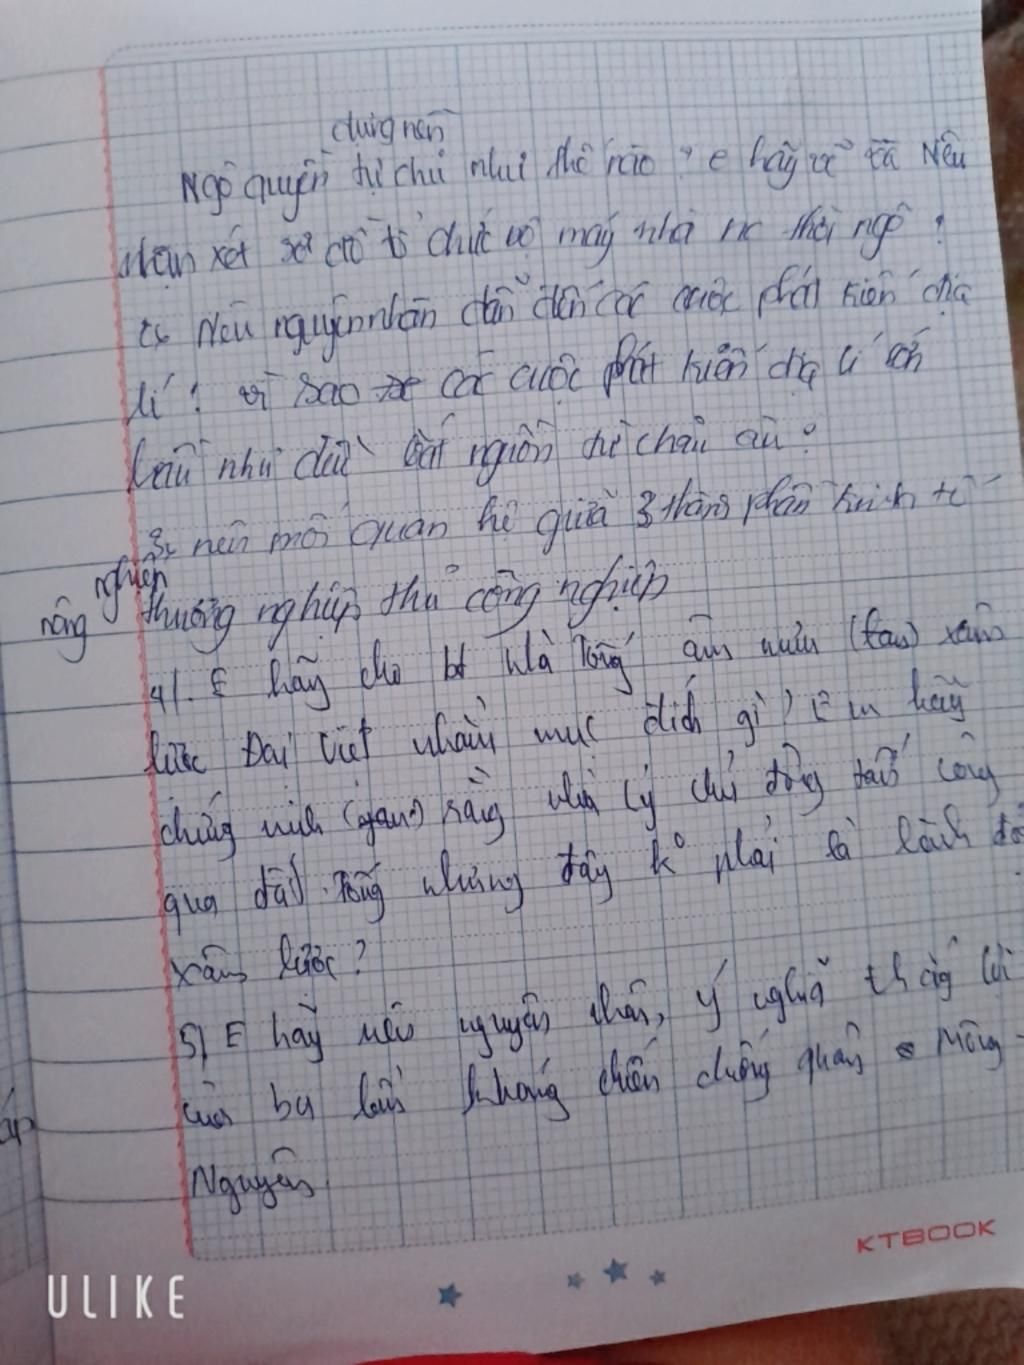 dựng nền
Ngô quyền tự chủ như thế nào ? e hãy vẽ và Nêu
Nhận xét sơ đồ tổ chức bộ máy nhà nc thời ngô ?
Nêu nguyên nhân dẫn đến các cuộc phát kiến địa
lí ? vì sao các cuộc phát kiến địa lí
hầu như đều bắt nguồn từ châu âu ?
3, nêu mối quan hệ giữa 3 thành phần kinh tế
nông nghiệp thương nghiệp thủ công nghiệp
4/. E hãy cho bt Nhà Tống âm mưu xâm
lược Đại Việt nhằm mục đích gì ? Em hãy
chứng minh rằng nhà Lý chủ động tấn công
qua đất Tống nhưng đây k phải là hành độ
xâm lược ?
5/ E hãy nêu nguyên nhân, ý nghĩa thắng lợi
của ba lần kháng chiến chống quân Mông -
Nguyên.
KTBOOK
ULIKE